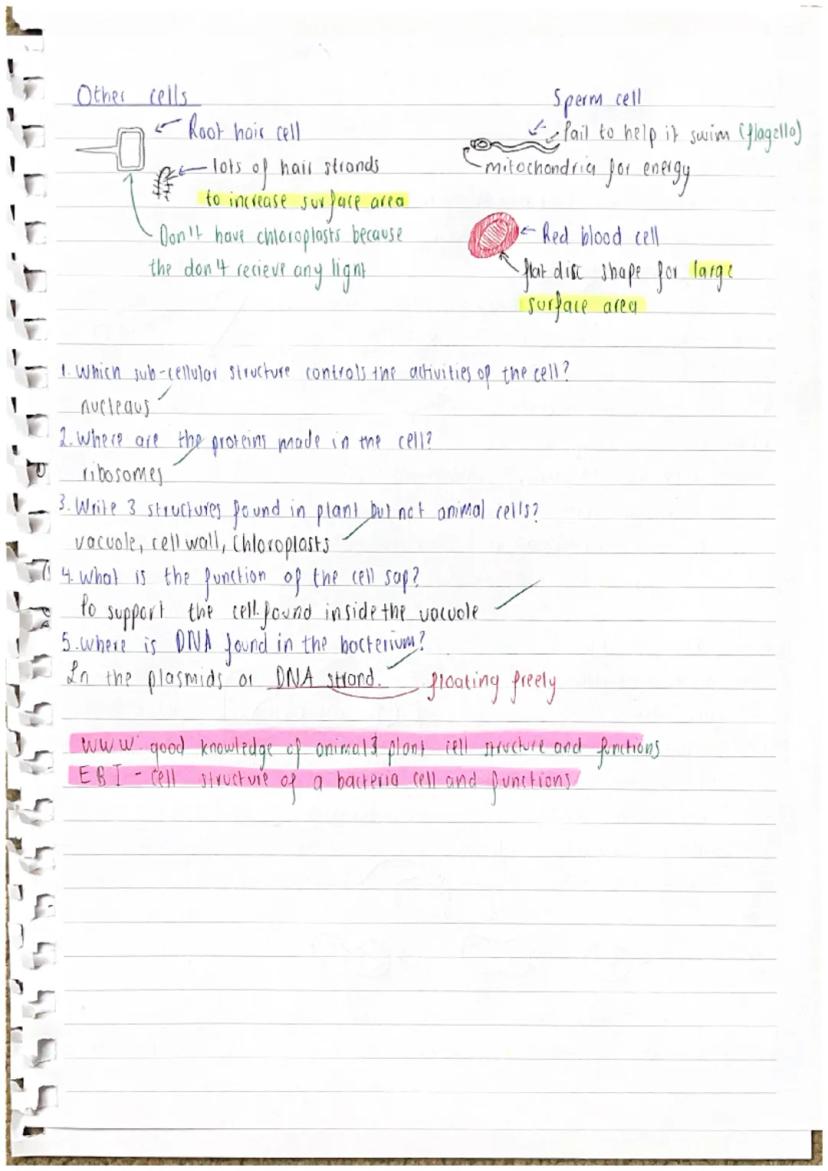 Other cells
Root hair cell
lots of hair strands
to increase surface area
Don't have chloroplasts because
the don't recieve any light
Sperm cell
Tail to help it swim (flagella)
mitochondria for energy
Red blood cell
flat disc shape for large
surface area
1. Which sub-cellular structure controls the activities of the cell?
nucleaus
2. Where are the proteins made in the cell?
ribosomes
3. Write 3 structures found in plant but not animal cells?
vacuole, cell wall, Chloroplasts
4. What is the function of the cell sap?
To support the cell. found inside the vacuole
5. Where is DNA found in the bacterium?
In the plasmids or DNA strand. floating freely
WWW: good knowledge of animal & plant cell structure and functions
EBI - cell structure of a bacteria cell and functions